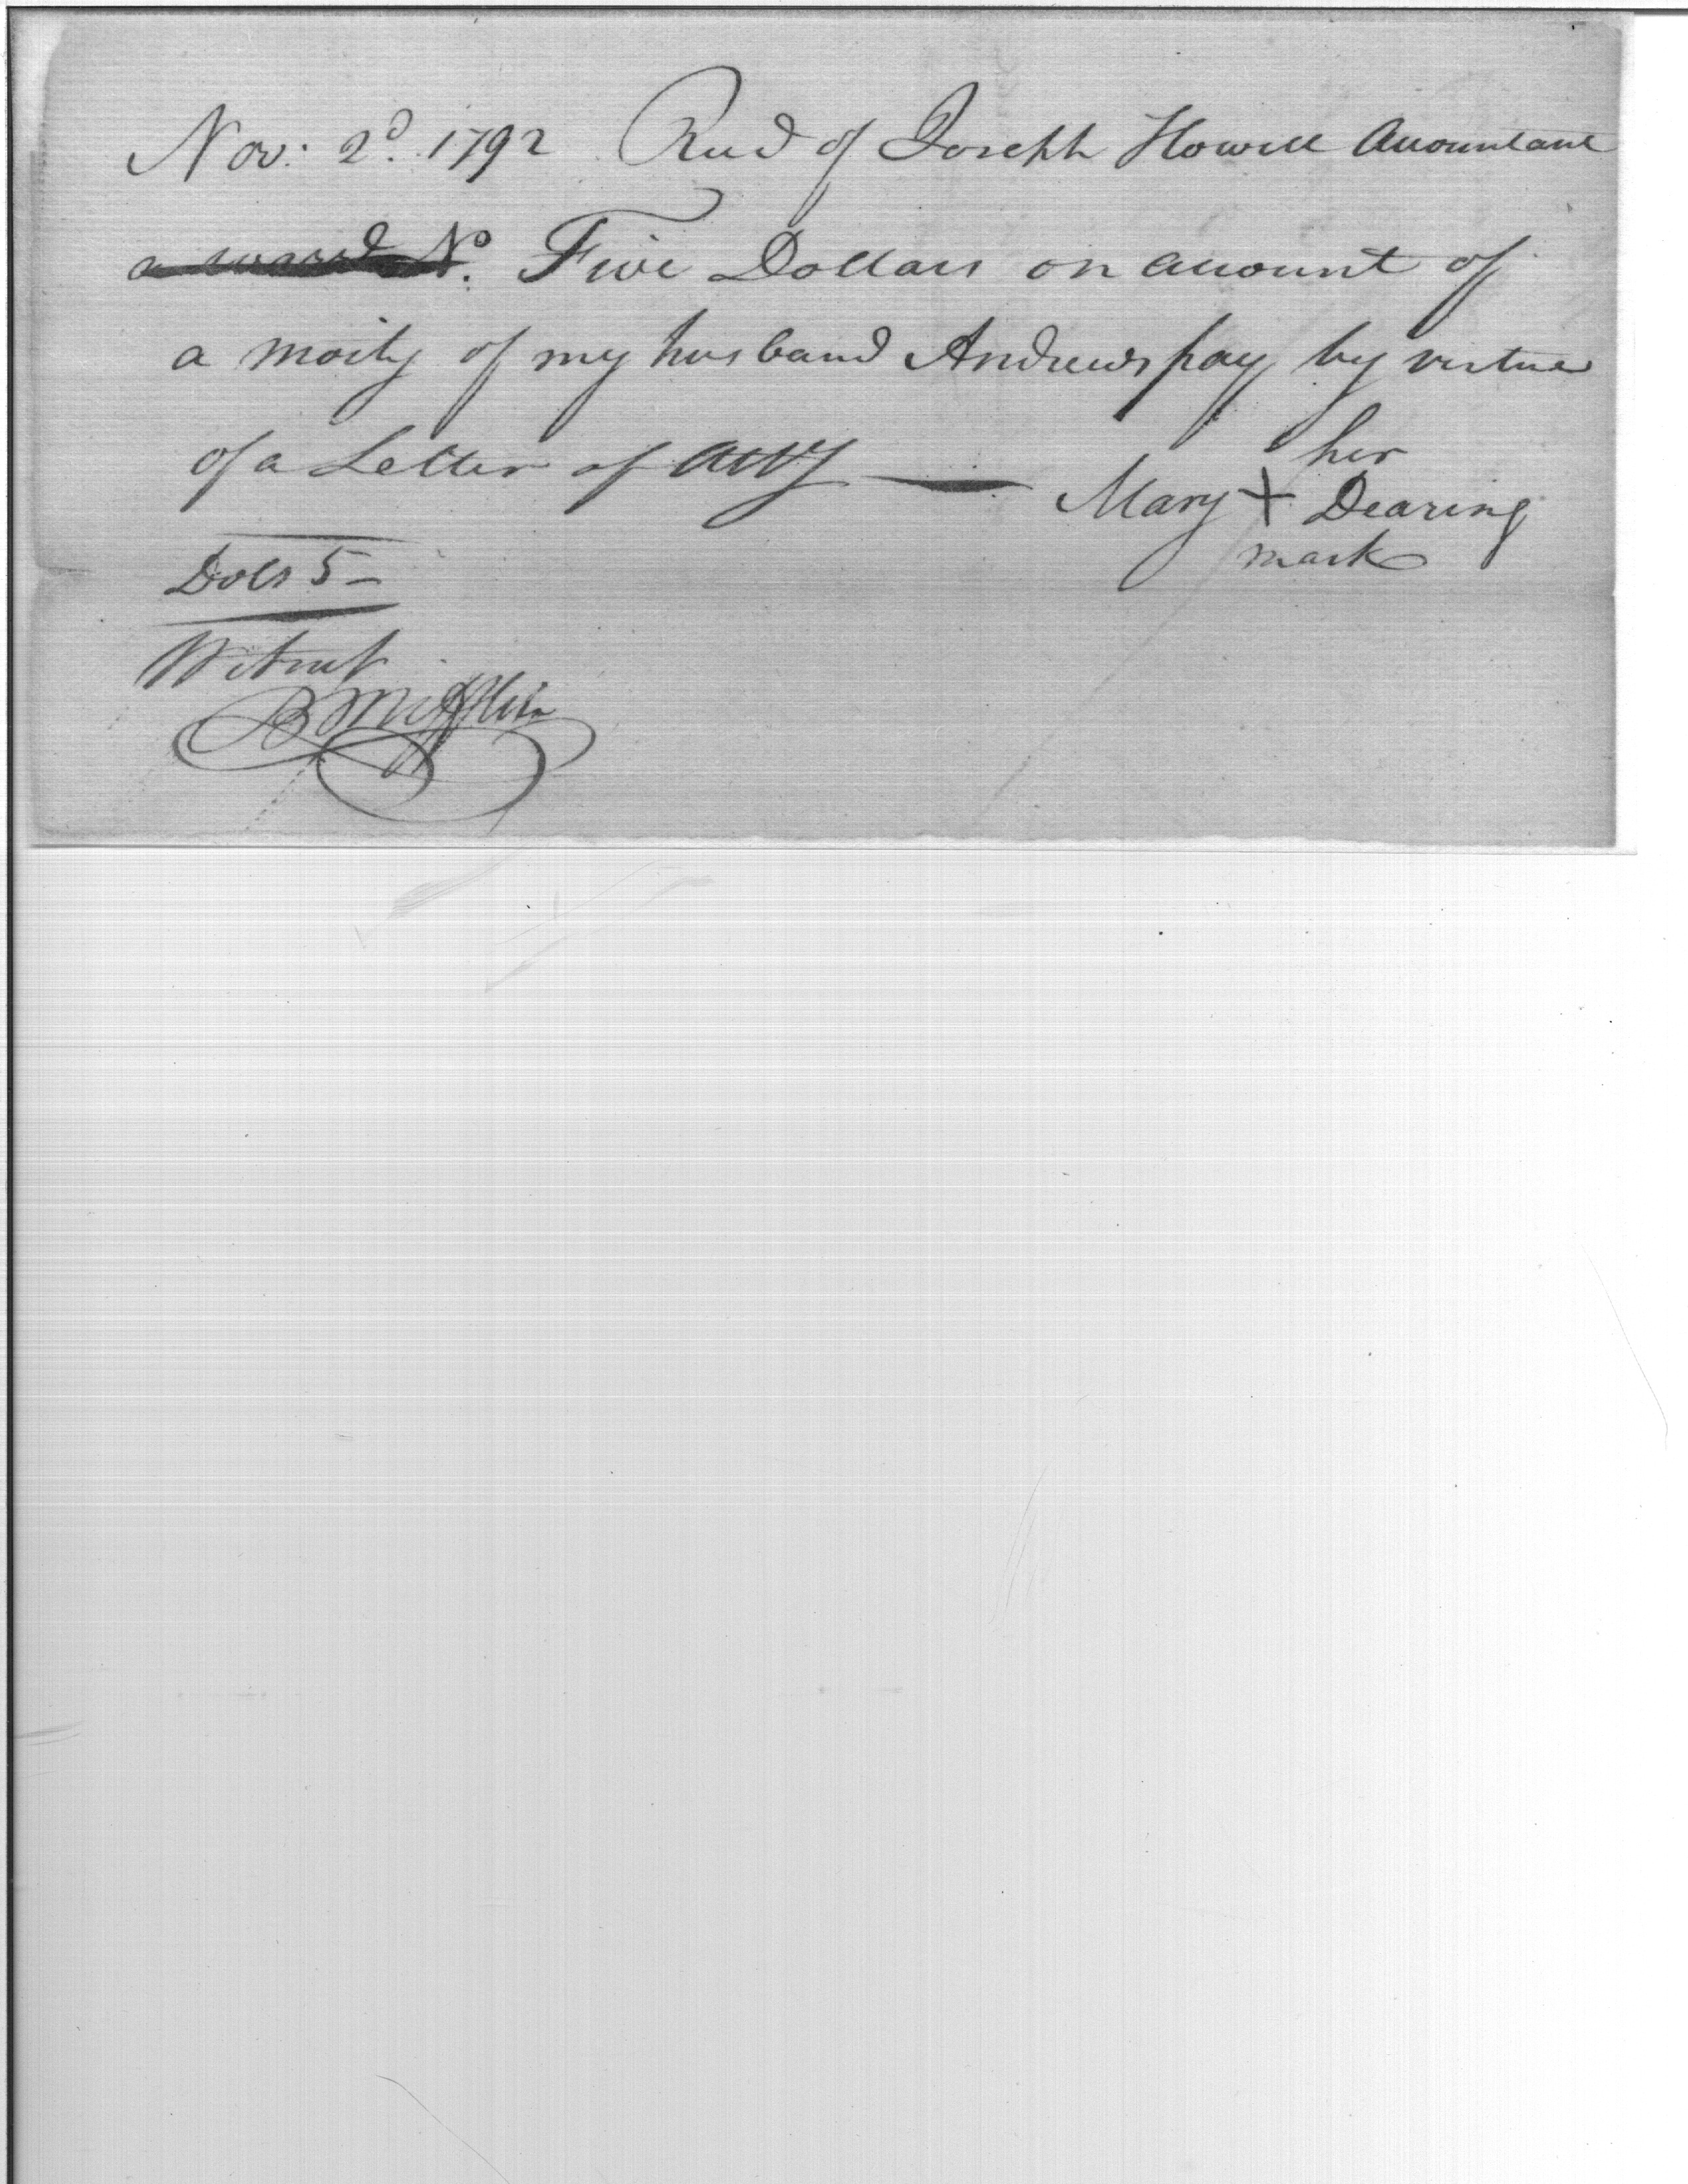 Nov: 2d. 1792 Recd of Joseph Howell Accountant
No. Five Dollars on account of
a moity of my husband Andrews pay by virtue
of a Letter of atty —
her
Mary X Dearing
mark
Dols 5 –
Witness
B Mifflin